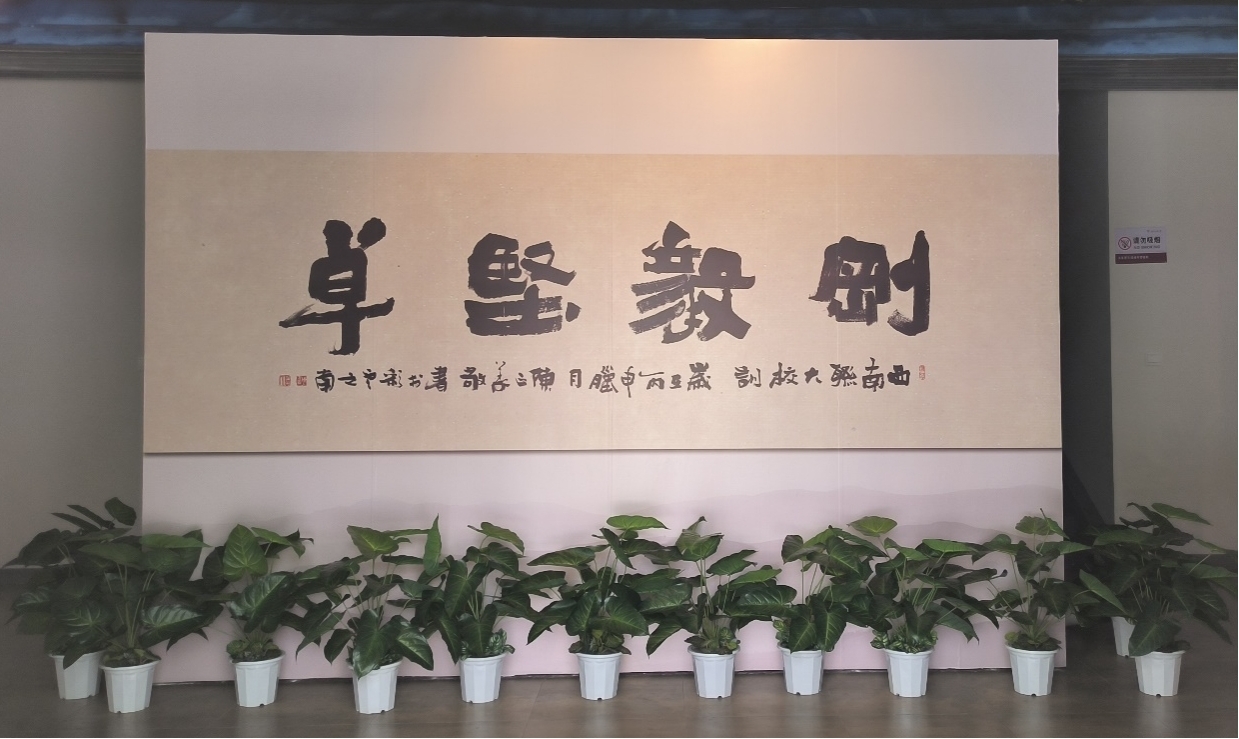 剛毅堅卓
西南聯大校訓 歲在丙申臘月 陳善敬書於彩云之南
请勿吸烟